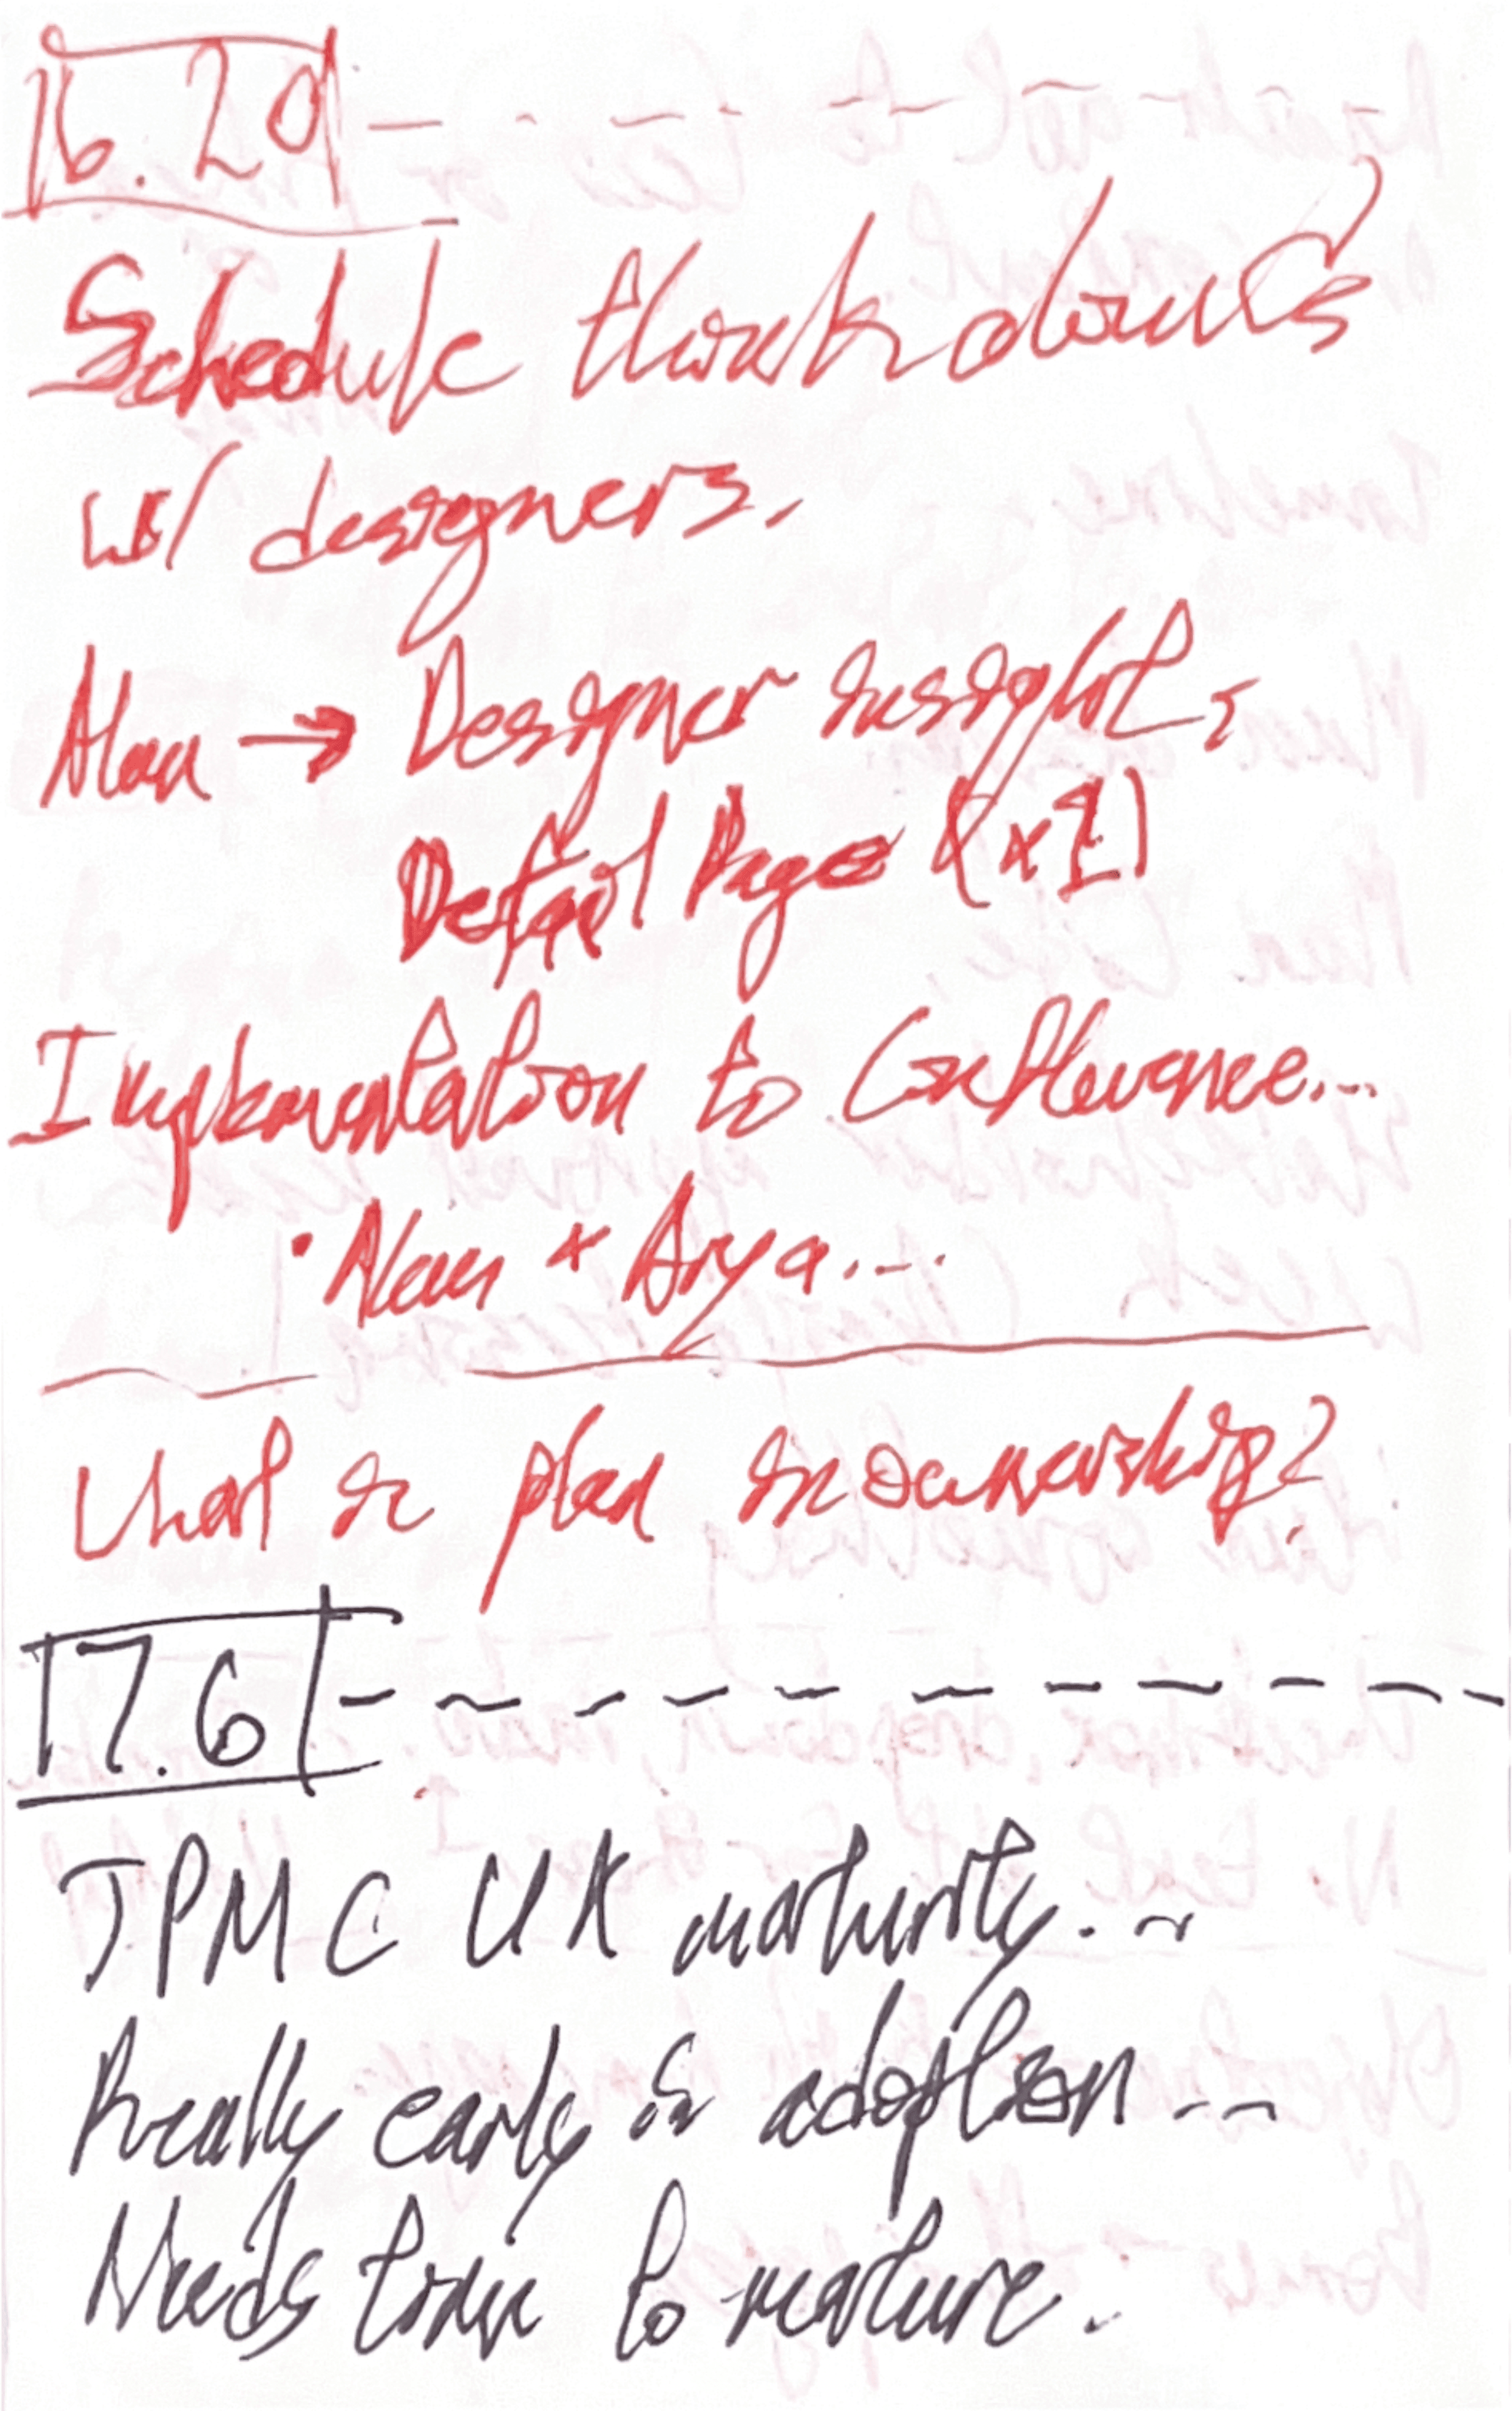 16.20
Schedule thinkdowns
w/ designers.
Alan → Designer insight,
Detail Page (x1)
Implementation to Confluence...
· Alan + Arya...
What is plan in ownership?
17.6
JPMC UX maturity...
Really early in adoption...
Needs time to mature.